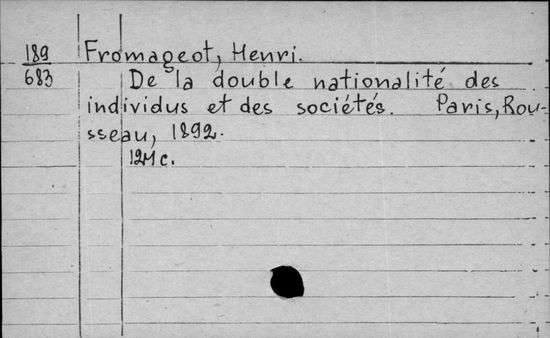 189 Fromageot, Henri.
683 De la double nationalité des
individus et des sociétés. Paris, Rou-
sseau, 1892.